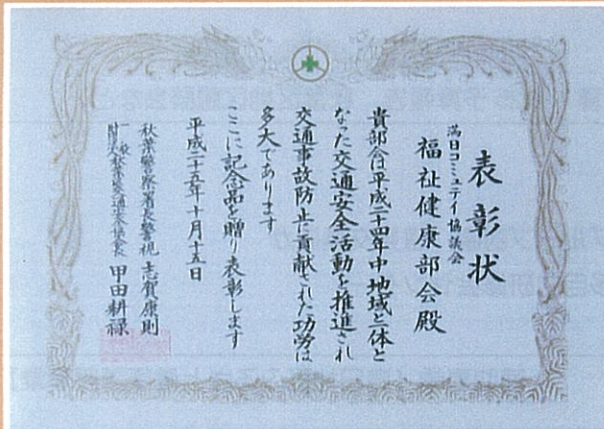 表彰状
満日コミュニティ協議会
福祉健康部会殿
貴部会は平成二十四年中地域と一体と
なった交通安全活動を推進され
交通事故防止に貢献された功労は
多大であります
ここに記念品を贈り表彰します
平成二十五年十月十五日
秋葉警察署長警視 志賀康則
一般財団法人秋葉区交通安全協会長 甲田耕禄